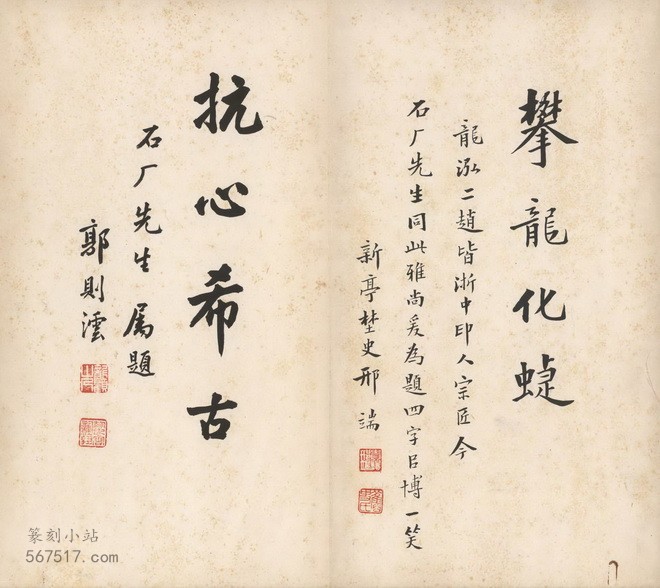 攀龍化蜨
龍泓二趙皆浙中印人宗匠今
石厂先生同此雅尚爰為題四字㠯博一笑
新亭埜史邢端
抗心希古
石厂先生属題
郭則澐
篆刻小站
567517.com